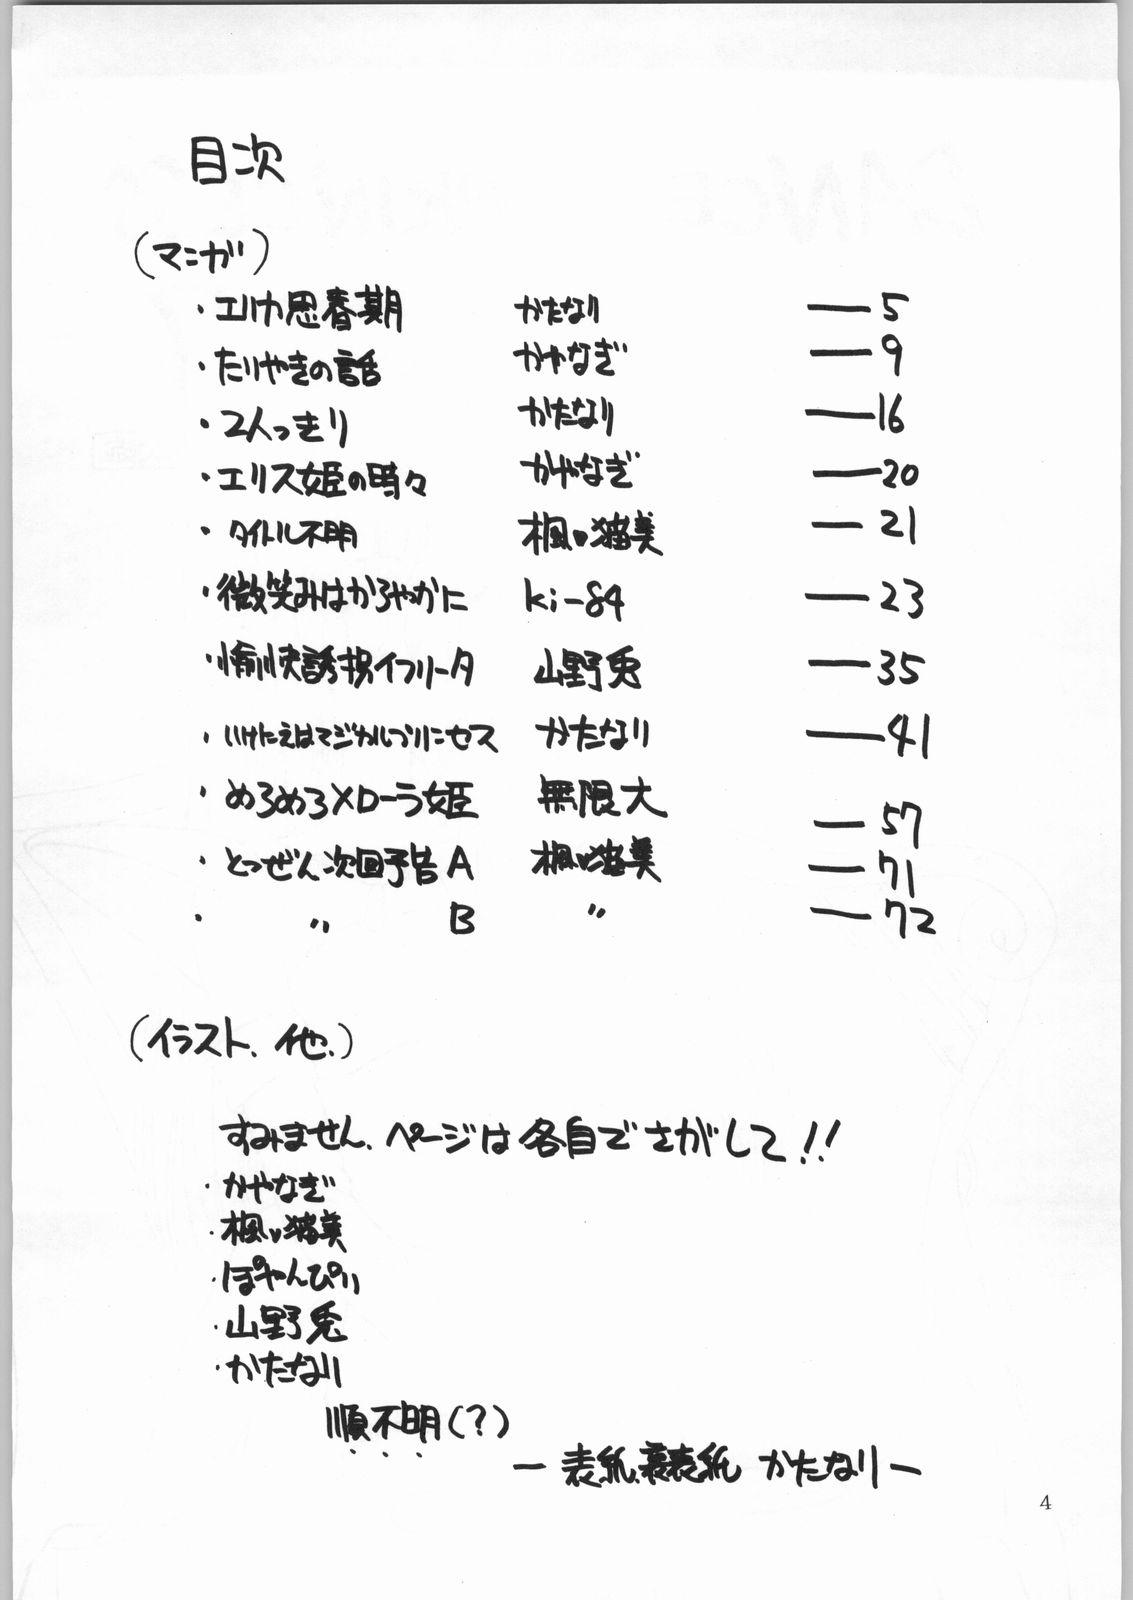 目次
(マンガ)
・エリカ思春期 かたなり —— 5
・たりやきの話 かやなぎ —— 9
・2人っきり かたなり —— 16
・エリス姫の時々 かやなぎ —— 20
・タイトル不明 楓い猫美 —— 21
・微笑みはかろやかに ki-84 —— 23
・愉快誘拐イフリータ 山野兎 —— 35
・いけにえはマジカルプリンセス かたなり —— 41
・めろめろ×ローラ姫 無限大 —— 57
・とつぜん次回予告A 楓い猫美 —— 71
・ 〃 B 〃 —— 72
(イラスト、他、)
すみません、ページは各自でさがして!!
・かやなぎ
・楓い猫美
・ぽやんぴぃ
・山野兎
・かたなり
順不明(?)
— 表紙、裏表紙 かたなり —
4